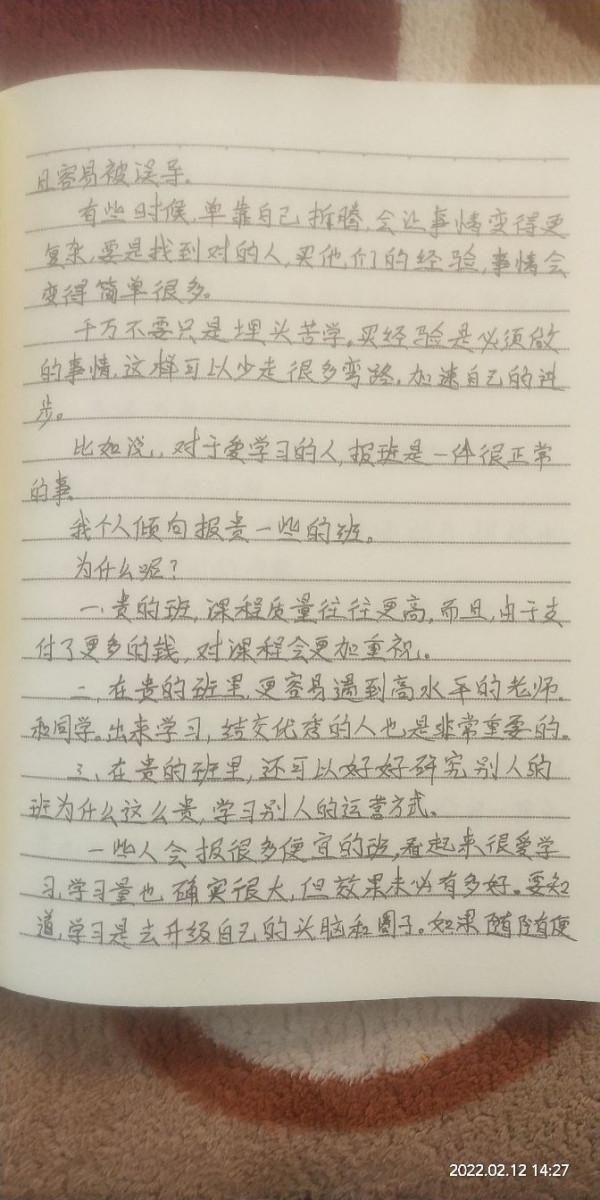 且容易被误导.
有些时候,单靠自己折腾,会让事情变得更
复杂,要是找到对的人,买他们的经验,事情会
变得简单很多。
千万不要只是埋头苦学。买经验是必须做
的事情,这样可以少走很多弯路,加速自己的进
步。
比如说,对于爱学习的人,报班是一件很正常
的事
我个人倾向报贵一些的班。
为什么呢?
一、贵的班,课程质量往往更高,而且,由于支
付了更多的钱,对课程会更加重视。
二、在贵的班里,更容易遇到高水平的老师
和同学。出来学习,结交优秀的人也是非常重要的。
三、在贵的班里,还可以好好研究别人的
班为什么这么贵,学习别人的运营方式、
一些人会报很多便宜的班,看起来很爱学
习,学习量也确实很大,但效果未必有多好。要知
道,学习是去升级自己的头脑和圈子。如果随随便
2022.02.12 14:27